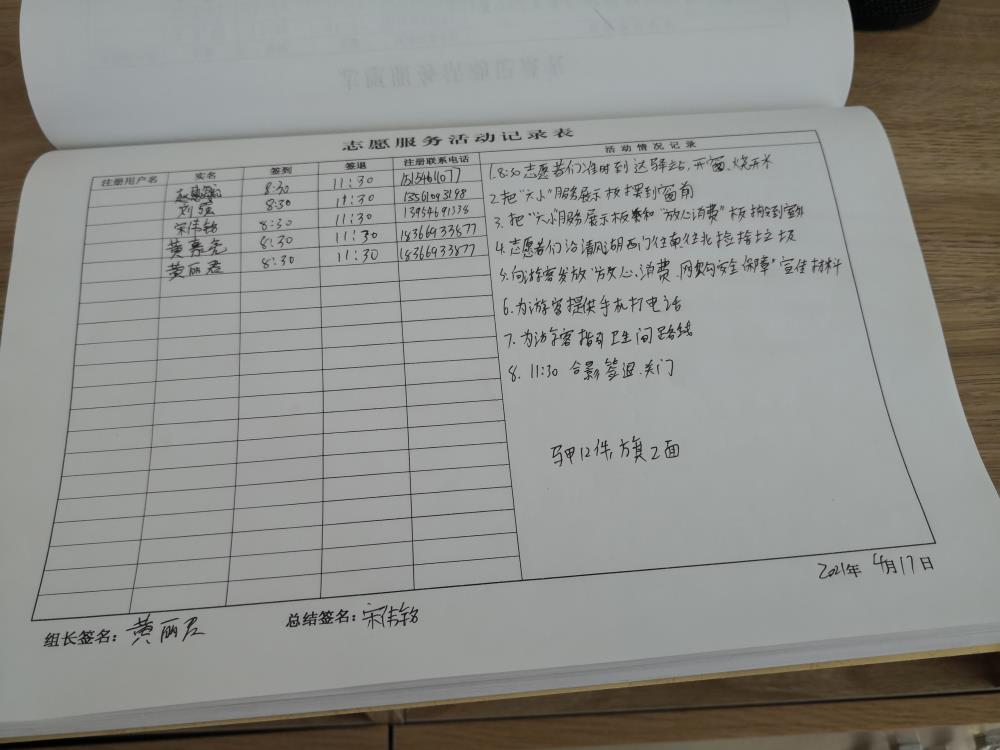 志愿服务活动记录表
注册用户名 实名 签到 签退 注册联系电话 活动情况记录
8:30 11:30
刘 8:30 11:30 13561093198
宋伟铭 8:30 11:30
黄 尧 8:30 11:30 18366933877
黄丽君 8:30 11:30 18366933877
1.8:30志愿者们准时到达驿站,开窗、烧开水
2.把"大小"服务展示板摆到窗前
3.把"大小"服务展示板和"放心消费"板 到室外
4.志愿者们沿清风湖西门往南往北捡拾垃圾
5.向游客发放"放心消费、网购安全保障"宣传材料
6.为游客提供手机打电话
7.为游客指引卫生间路线
8.11:30 合影、签退、关门
马甲12件,旗2面
2021年 4月17日
组长签名:黄丽君 总结签名:宋伟铭